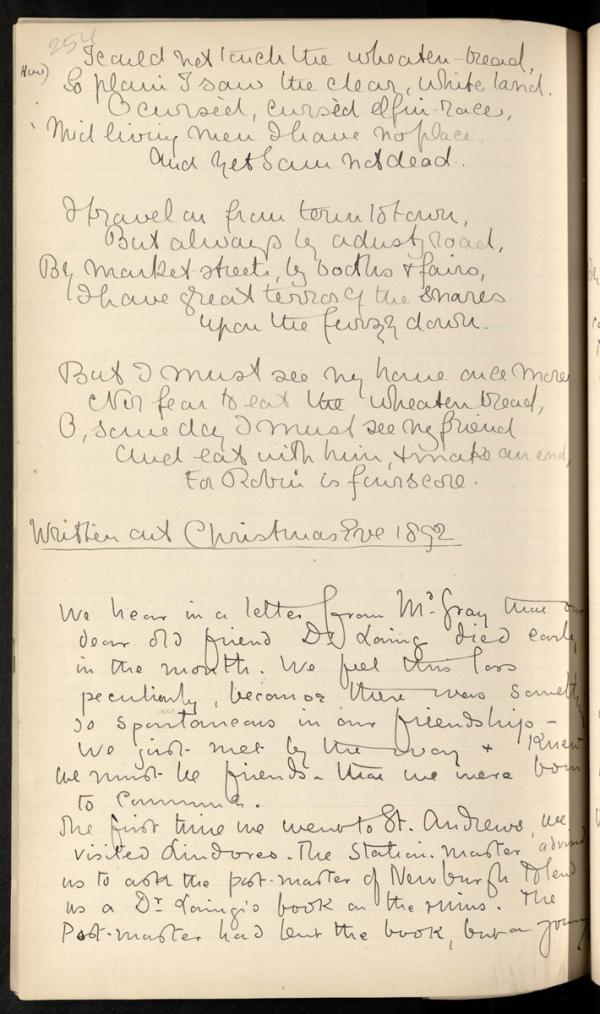 254
I could not touch the wheaten-bread,
So plain I saw the clear, white land.
O cursed, cursèd elfin-race,
'Mid living men I have no place,
And yet I am not dead..
I travel on from town to town,
But always by a dusty road,
By market streets, by booths & fairs,
I have great terror of the snares
upon the furzy down.
But I must see my home once more
Nor fear to eat the wheaten bread,
O, some day I must see my friend
And eat with him, & make an end,
For Robin is fourscore.
Written out Christmas Eve 1892
We hear in a letter from Mr Gray that our
dear old friend Dr Laing died early
in the month. We feel this loss
peculiarly, because there was someth
so spontaneous in our friendship -
We just met by the way & knew
we must be friends - that we were born
to commune.
The first time we went to St. Andrews, we
visited Lindores. The Station-master advised
us to ask the post-master of Newburgh to lend
us a Dr Laing's book on the ruins. The
Post-master had lent the book, but a young